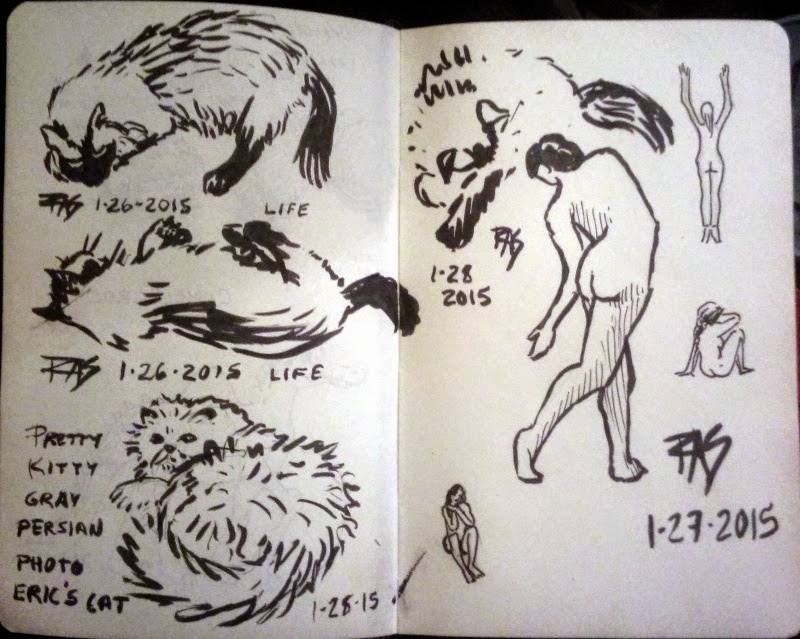 RAS 1-26-2015 LIFE
RAS 1-26-2015 LIFE
PRETTY
KITTY
GRAY
PERSIAN
PHOTO
ERIC'S CAT
1-28-15
RAS
1-28
2015
RAS
1-27-2015